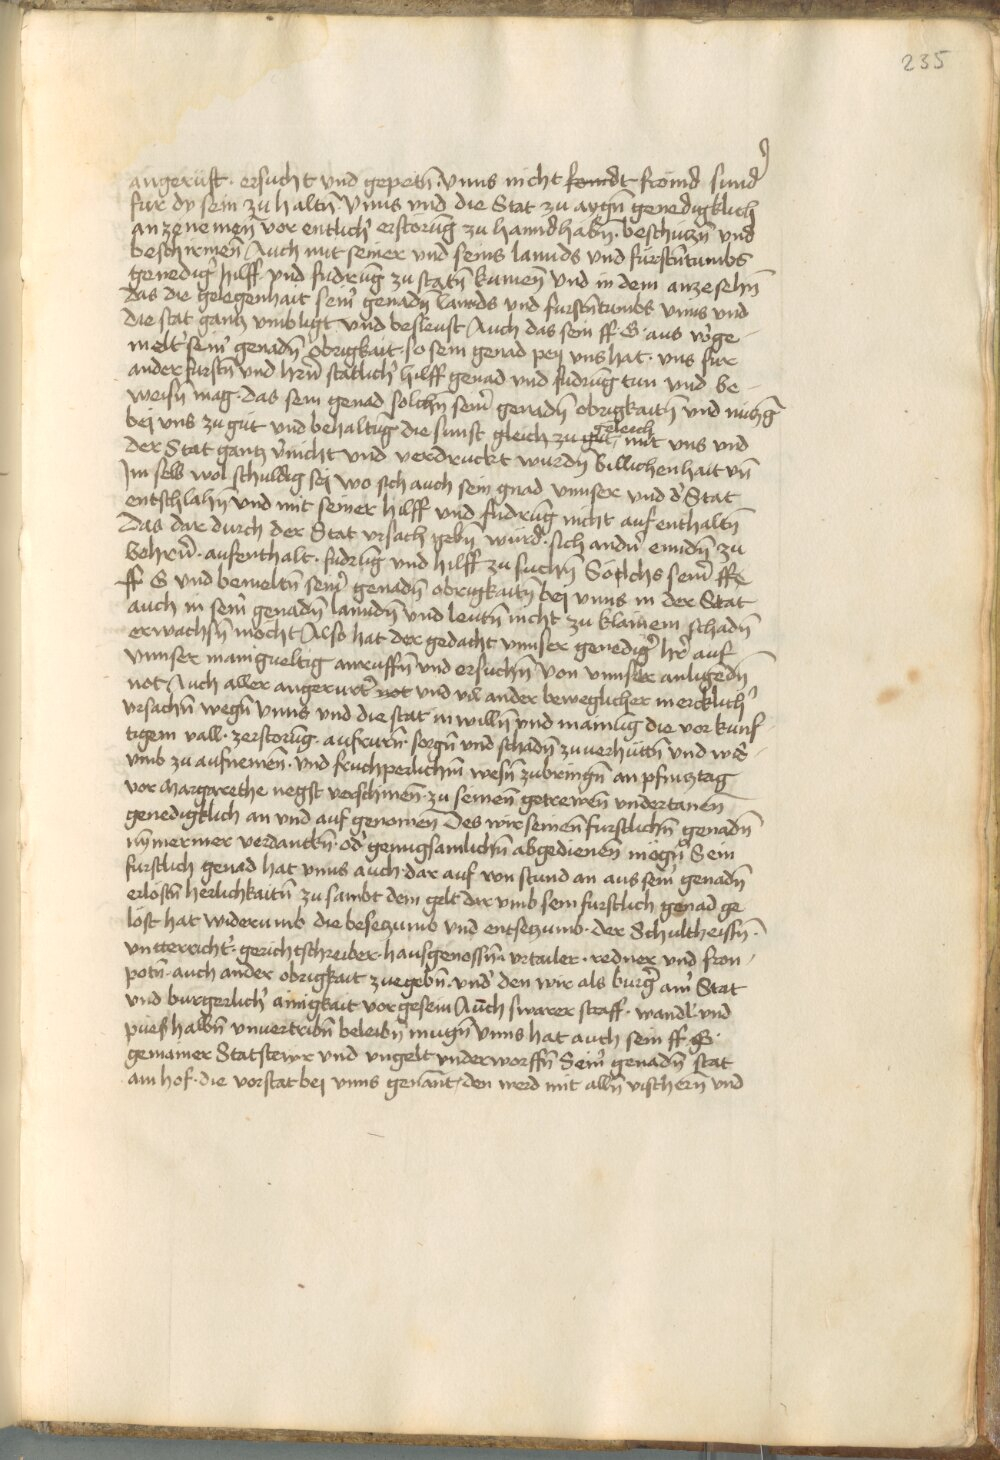 235
angerüft. ersucht vnd gepetn̄. Vnns nicht frömd sund̾
fur dy sein zu haltn̄. Vnns vnd die Stat zu aygn̄ genedigklich
anzenemen̄ vor entlich̾ erstorūg zu hanndhabn̄. beschutzn̄ vnd
beschirmen̄ Auch mit seiner vnd seins lannds vnd fürstntumbs
genedig̾ hilff vnd fudrūg zu statn̄ kumen̄ Vnd in dem anzesehn̄
Das die gelegenhait sein̾ genadn̄ lannds vnd furstntumbs vnns vnd
die stat gantz vmbligt vnd besleust Auch das sein ff. G. aus v̾ge
melt sein̾ genadn̄ obrigkait. so sein genad pey vns hat. vns fur
ander furstn̄ vnd hrn̄ statlich̾ hilff genad vnd fudrūg tun vnd be
weisn̄ mag. das sein genad solchn̄ sein̾ genadn̄ obrigkaitn̄ vnd nutzḡ
bei vns zu güt vnd behaltūg die sunst gleich zu geleich mit vns vnd
der Stat gantz v̾nicht vnd verdruckt wurdn̄ billichenhait vn̄
Im selb wol schuldig sey wo sich auch sein gnad vnnser vnd d̾ Stat
entschlahn̄ vnd mit seiner hilff vnd fudrūg nicht aufenthaltn̄
Das dar durch der Stat vrsach gebn̄ würd. sich and̾n enndn̄ zu
behern̄. aufenthalt. fudrūg vnd hilff zu suchn̄ Sölchs sein̾ ff
G vnd bemeltn̄ sein̾ genadn̄ obrigkaitn̄ bey vnns in der Stat
auch in sein̾ genadn̄ lanndn̄ vnd leutn̄ nicht zu klainem schadn̄
erwachsn̄ möcht Also hat der gedacht vnnser genedig̾ h̾r auf
vnnser manigueltig anruffn̄ vnd ersuchn̄ Von vnnser anligēdn̄
not Auch aller angerurt̾ not vnd vil ander beweglicher mercklich̾
vrsachn̄ wegn̄ vnns vnd die stat in willn̄ vnd mainūg die vorkunf
tigem vall. zerstorūg. aufrurn̄. sorgn̄ vnd schadn̄ zuuerhüttn̄ vnd wid̾
vmb zu aufnemen̄. vnd fruchperlichm̄ wesn̄ zubringn̄ an pfintztag
vor Margarethe negst verschinen̄ zu seinen̄ getrewn̄ vndertanen̄
genedigklich an vnd auf genomen̄ Des wir seinen̄ furstlichn̄ genadn̄
nȳmermer verdanckn̄. od̾ genugsamlichn̄ abgedienen̄ mögn̄ Sein
furstlich genad hat vnns auch dar auf von stund an aus sein̾ genadn̄
erlostn̄ herlichkaitn̄ zu sambt dem gelt dar vmb sein furstlich genad ge
löst hat widerumb die besetzumb vnd entsetzumb. der Schultheissn̄.
vntterricht̾. gerichtschreiber. hausgenossn̄. vrtailer. redner vnd fron
potn̄. auch ander obrigkait zuegebn̄. vnd̾ den wir als burg̾ ain̾ Stat
vnd burgerlich̾ ainigkait vorgesein Auch swarer straff. wandl. vnd
pueß halbn̄ vnuertribn̄ beleibn̄ mugn̄ Vnns hat auch sein ff. G.
gemainer Statstewr vnd vngelt vnderworffn̄ Sein̾ genadn̄ stat
am hof. die vorstat bey vnns genant. den werd mit alln̄ vischern vnd